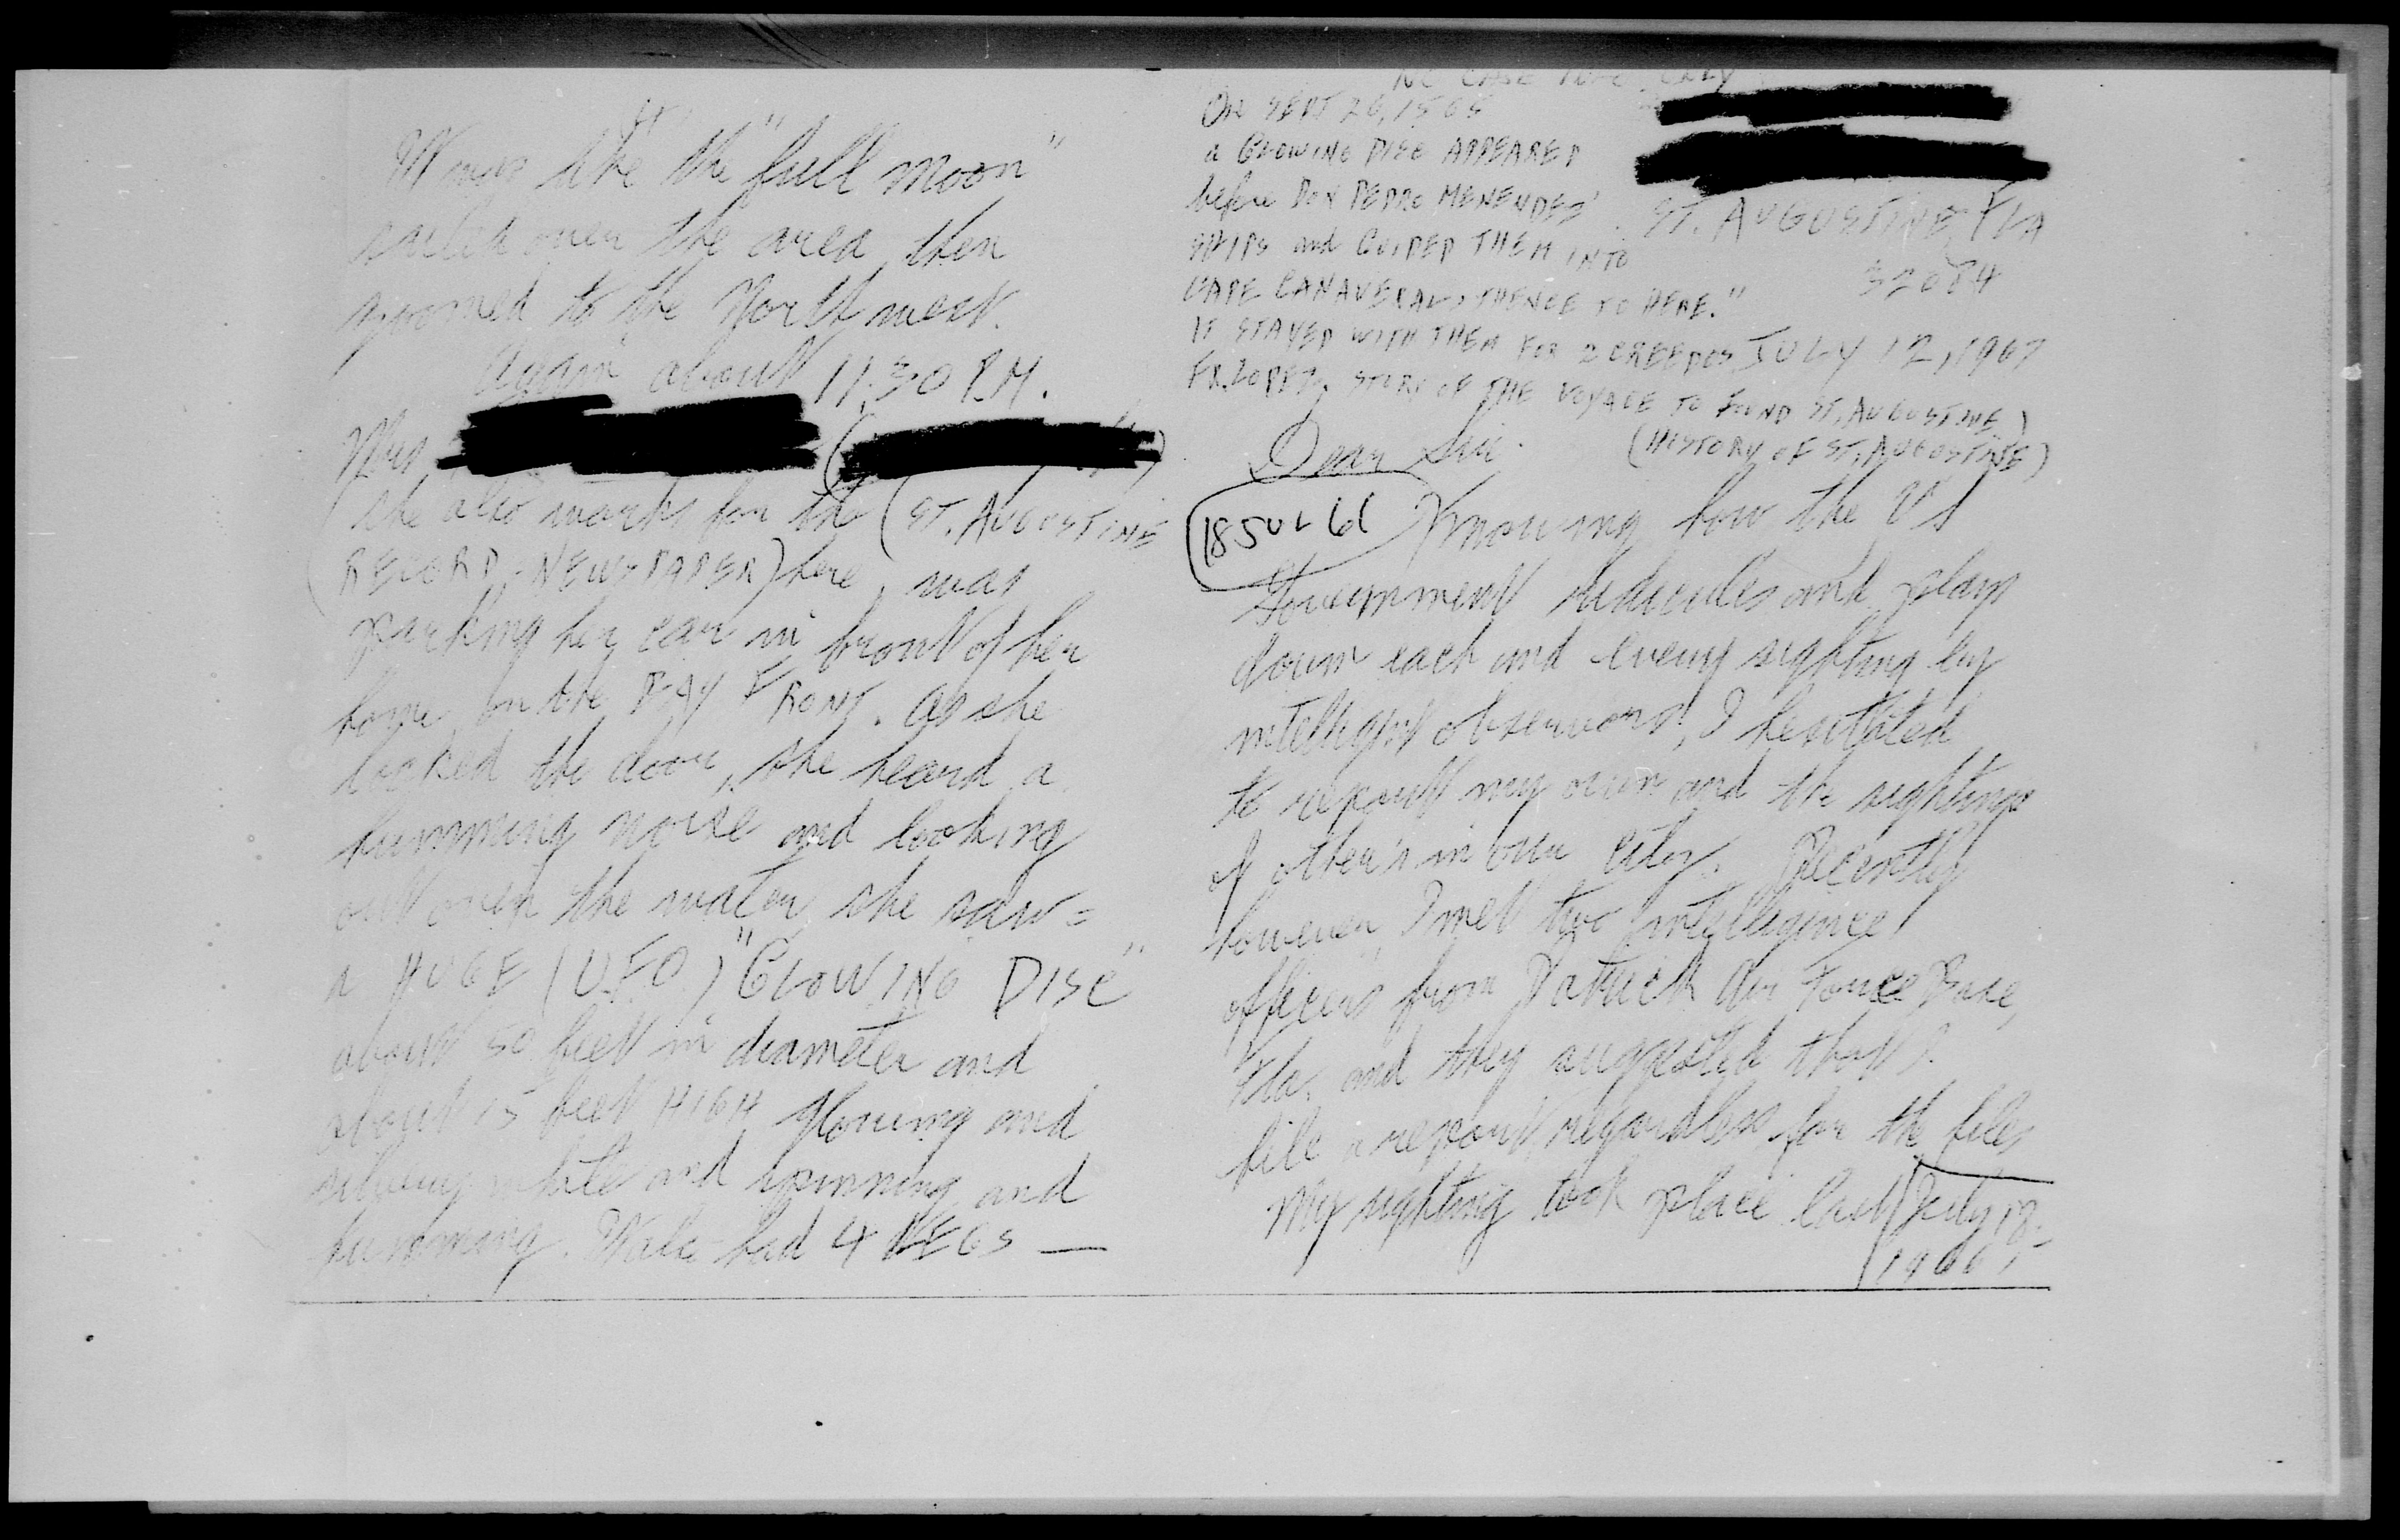 On SEPT 20, 1565
a GLOWING DISC APPEARED
before DON PEDRO MENENDEZ'
SHIPS and GUIDED THEM INTO
CAPE CANAVERAL, THENCE TO HERE."
IT STAYED WITH THEM FOR 2 CREEDOS
FR. LOPEZ, STORY OF THE VOYAGE TO FOUND ST. AUGUSTINE)
(HISTORY OF ST. AUGUSTINE)
ST. AUGUSTINE, FLA
32084
JULY 12, 1967
Dear Sir.
18 JUL 66
Knowing how the US
Government ridicules and plays
down each and every sighting by
intelligent observors, I hesitated
to report my own and the sightings
of other's in our city. Recently
however, I met two intelligence
officers from Patrick Air Force Base,
Fla. and they suggested that I
file a report, regardless for the files
My sighting took place last July 18-
1966,
It was like the "full moon"
sailed over the area, then
zoomed to the North west.
Again about 11:30 P.M.
Mrs
she also works for the (ST. AUGUSTINE
RECORD-NEWSPAPER) here, was
parking her car in front of her
home on the BAY FRONT. As she
locked the door, she heard a
humming noise and looking
out over the water, she saw =
a HUGE (UFO) "GLOWING DISC"
about 50 feet in diameter and
about 15 feet HIGH glowing and
silvery white and spinning and
humming. had 4 LEGS —